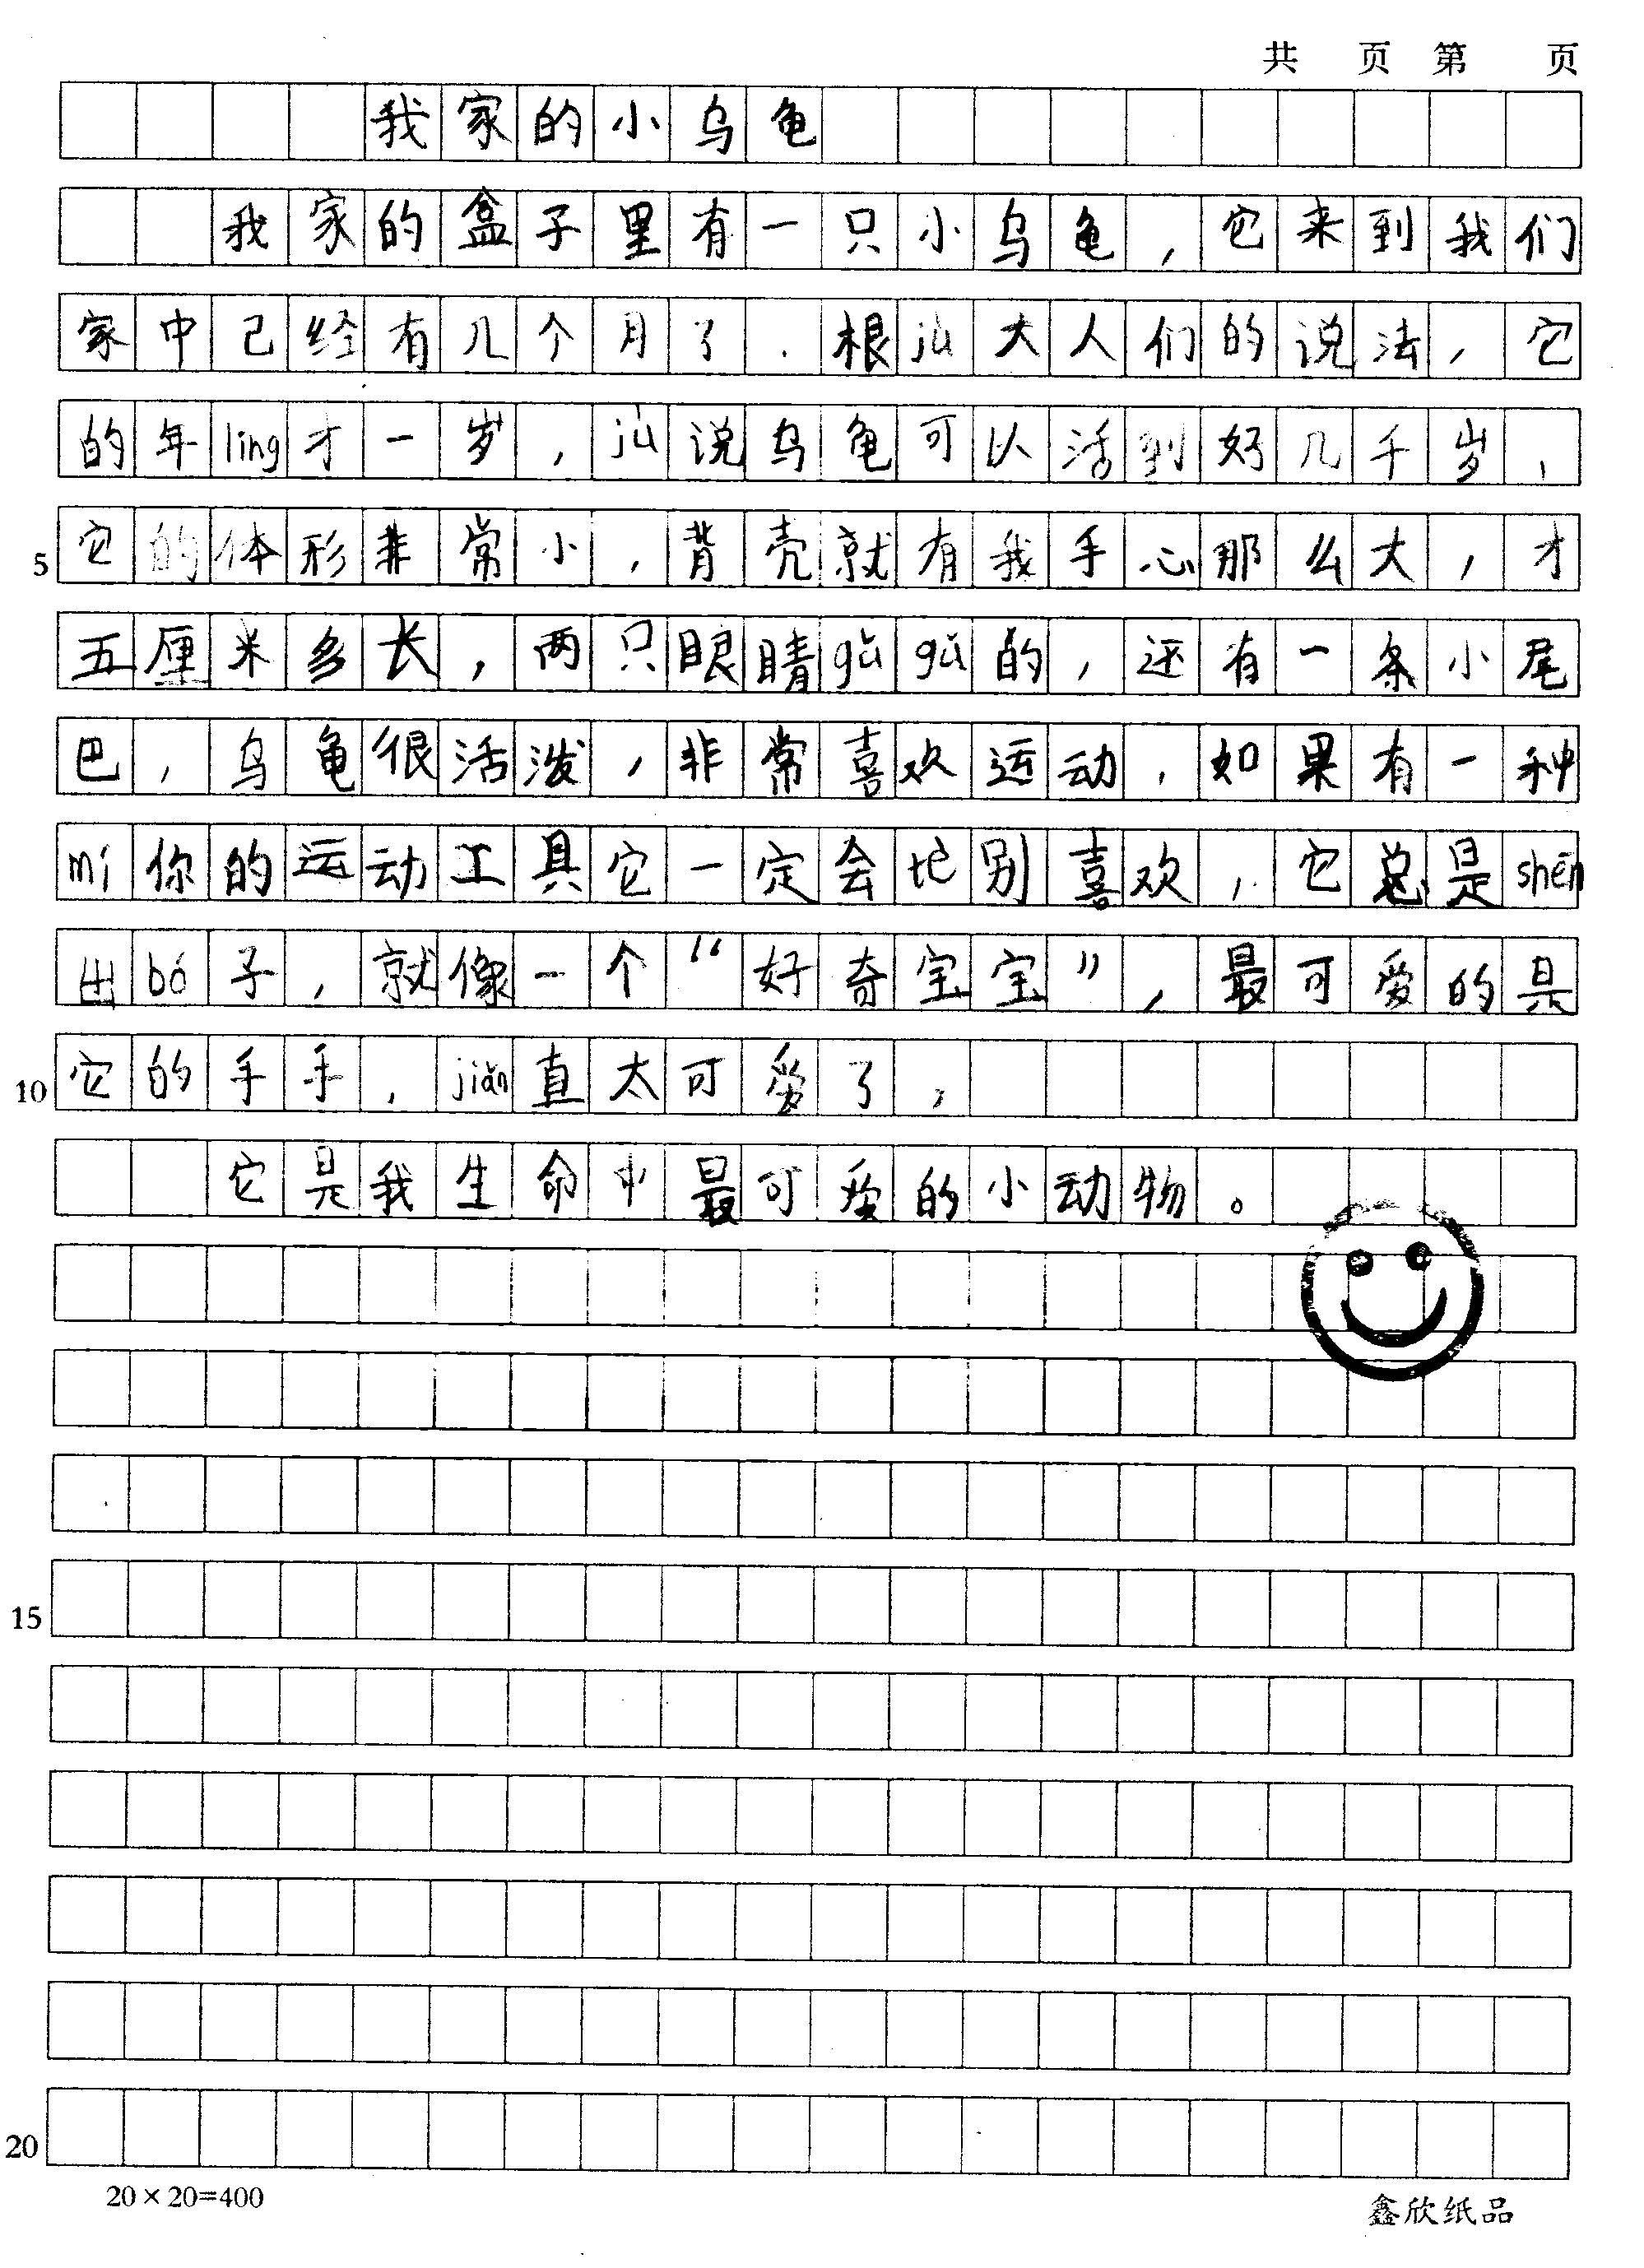 共 页 第 页
我家的小乌龟
我家的盒子里有一只小乌龟，它来到我们
家中已经有几个月了．根jù大人们的说法，它
的年líng才一岁，jù说乌龟可以活到好几千岁，
5 它的体形非常小，背壳就有我手心那么大，才
五厘米多长，两只眼睛gǔgǔ的，还有一条小尾
巴，乌龟很活泼，非常喜欢运动，如果有一种
mí你的运动工具它一定会特别喜欢，它总是shēn
出bó子，就像一个“好奇宝宝”，最可爱的是
10 它的手手，jiǎn直太可爱了，
它是我生命中最可爱的小动物。
15
20
20×20=400
鑫欣纸品